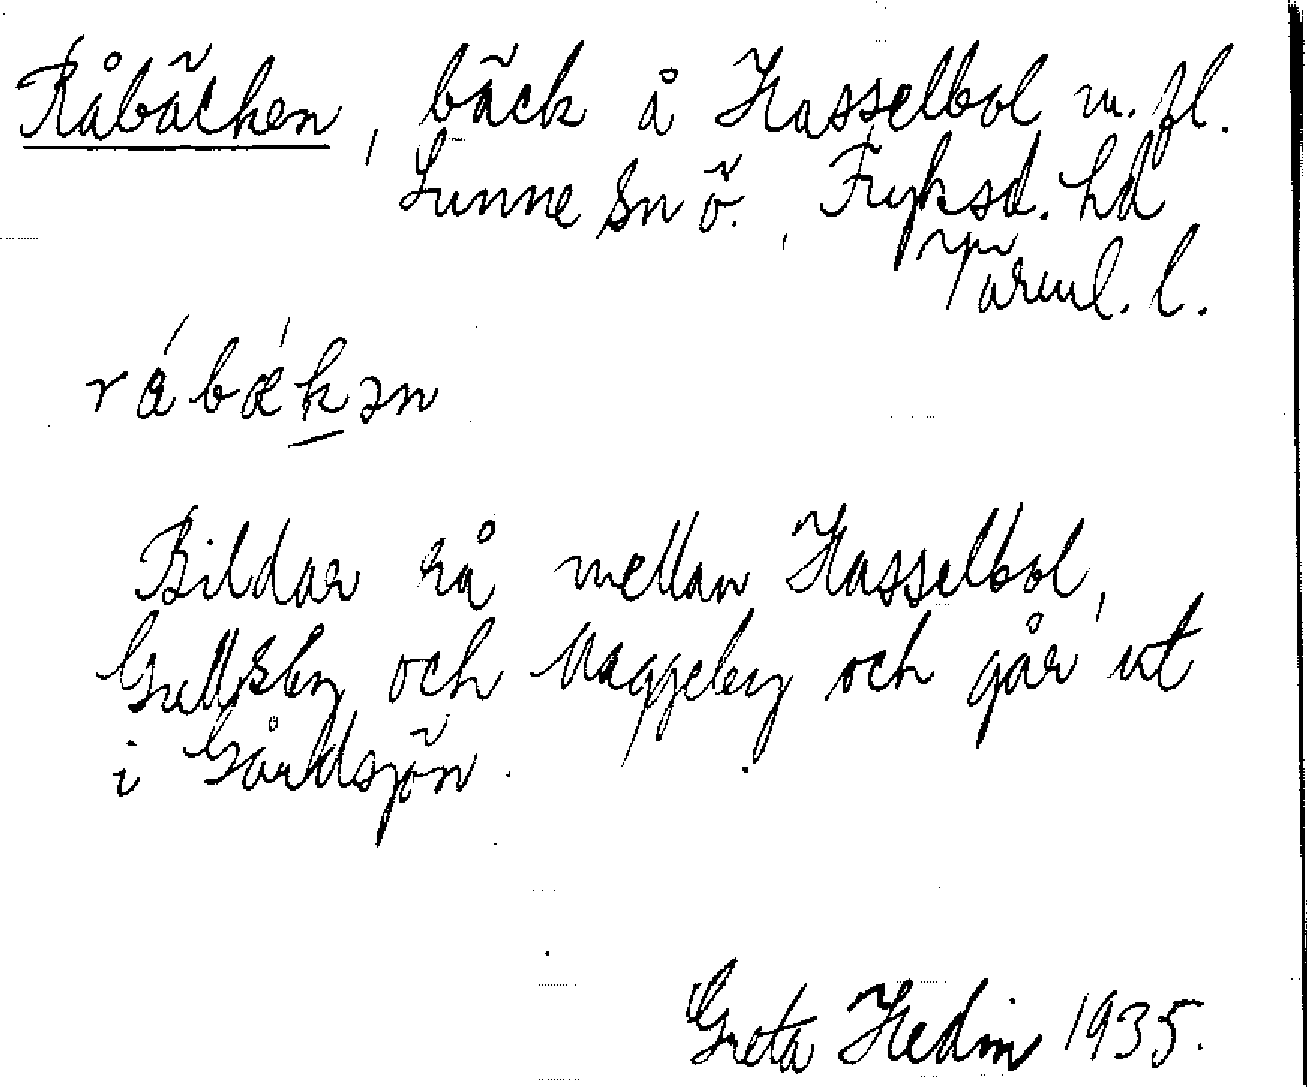 Råbäcken, bäck å Hasselbol m. fl.
Sunne sn ö., Fryksd. hd
Värml. l.
råbækən
Bildar rå mellan Hasselbol,
Gullsby och Maggeby och går ut
i Gårdsjön.
Greta Hedin 1935.